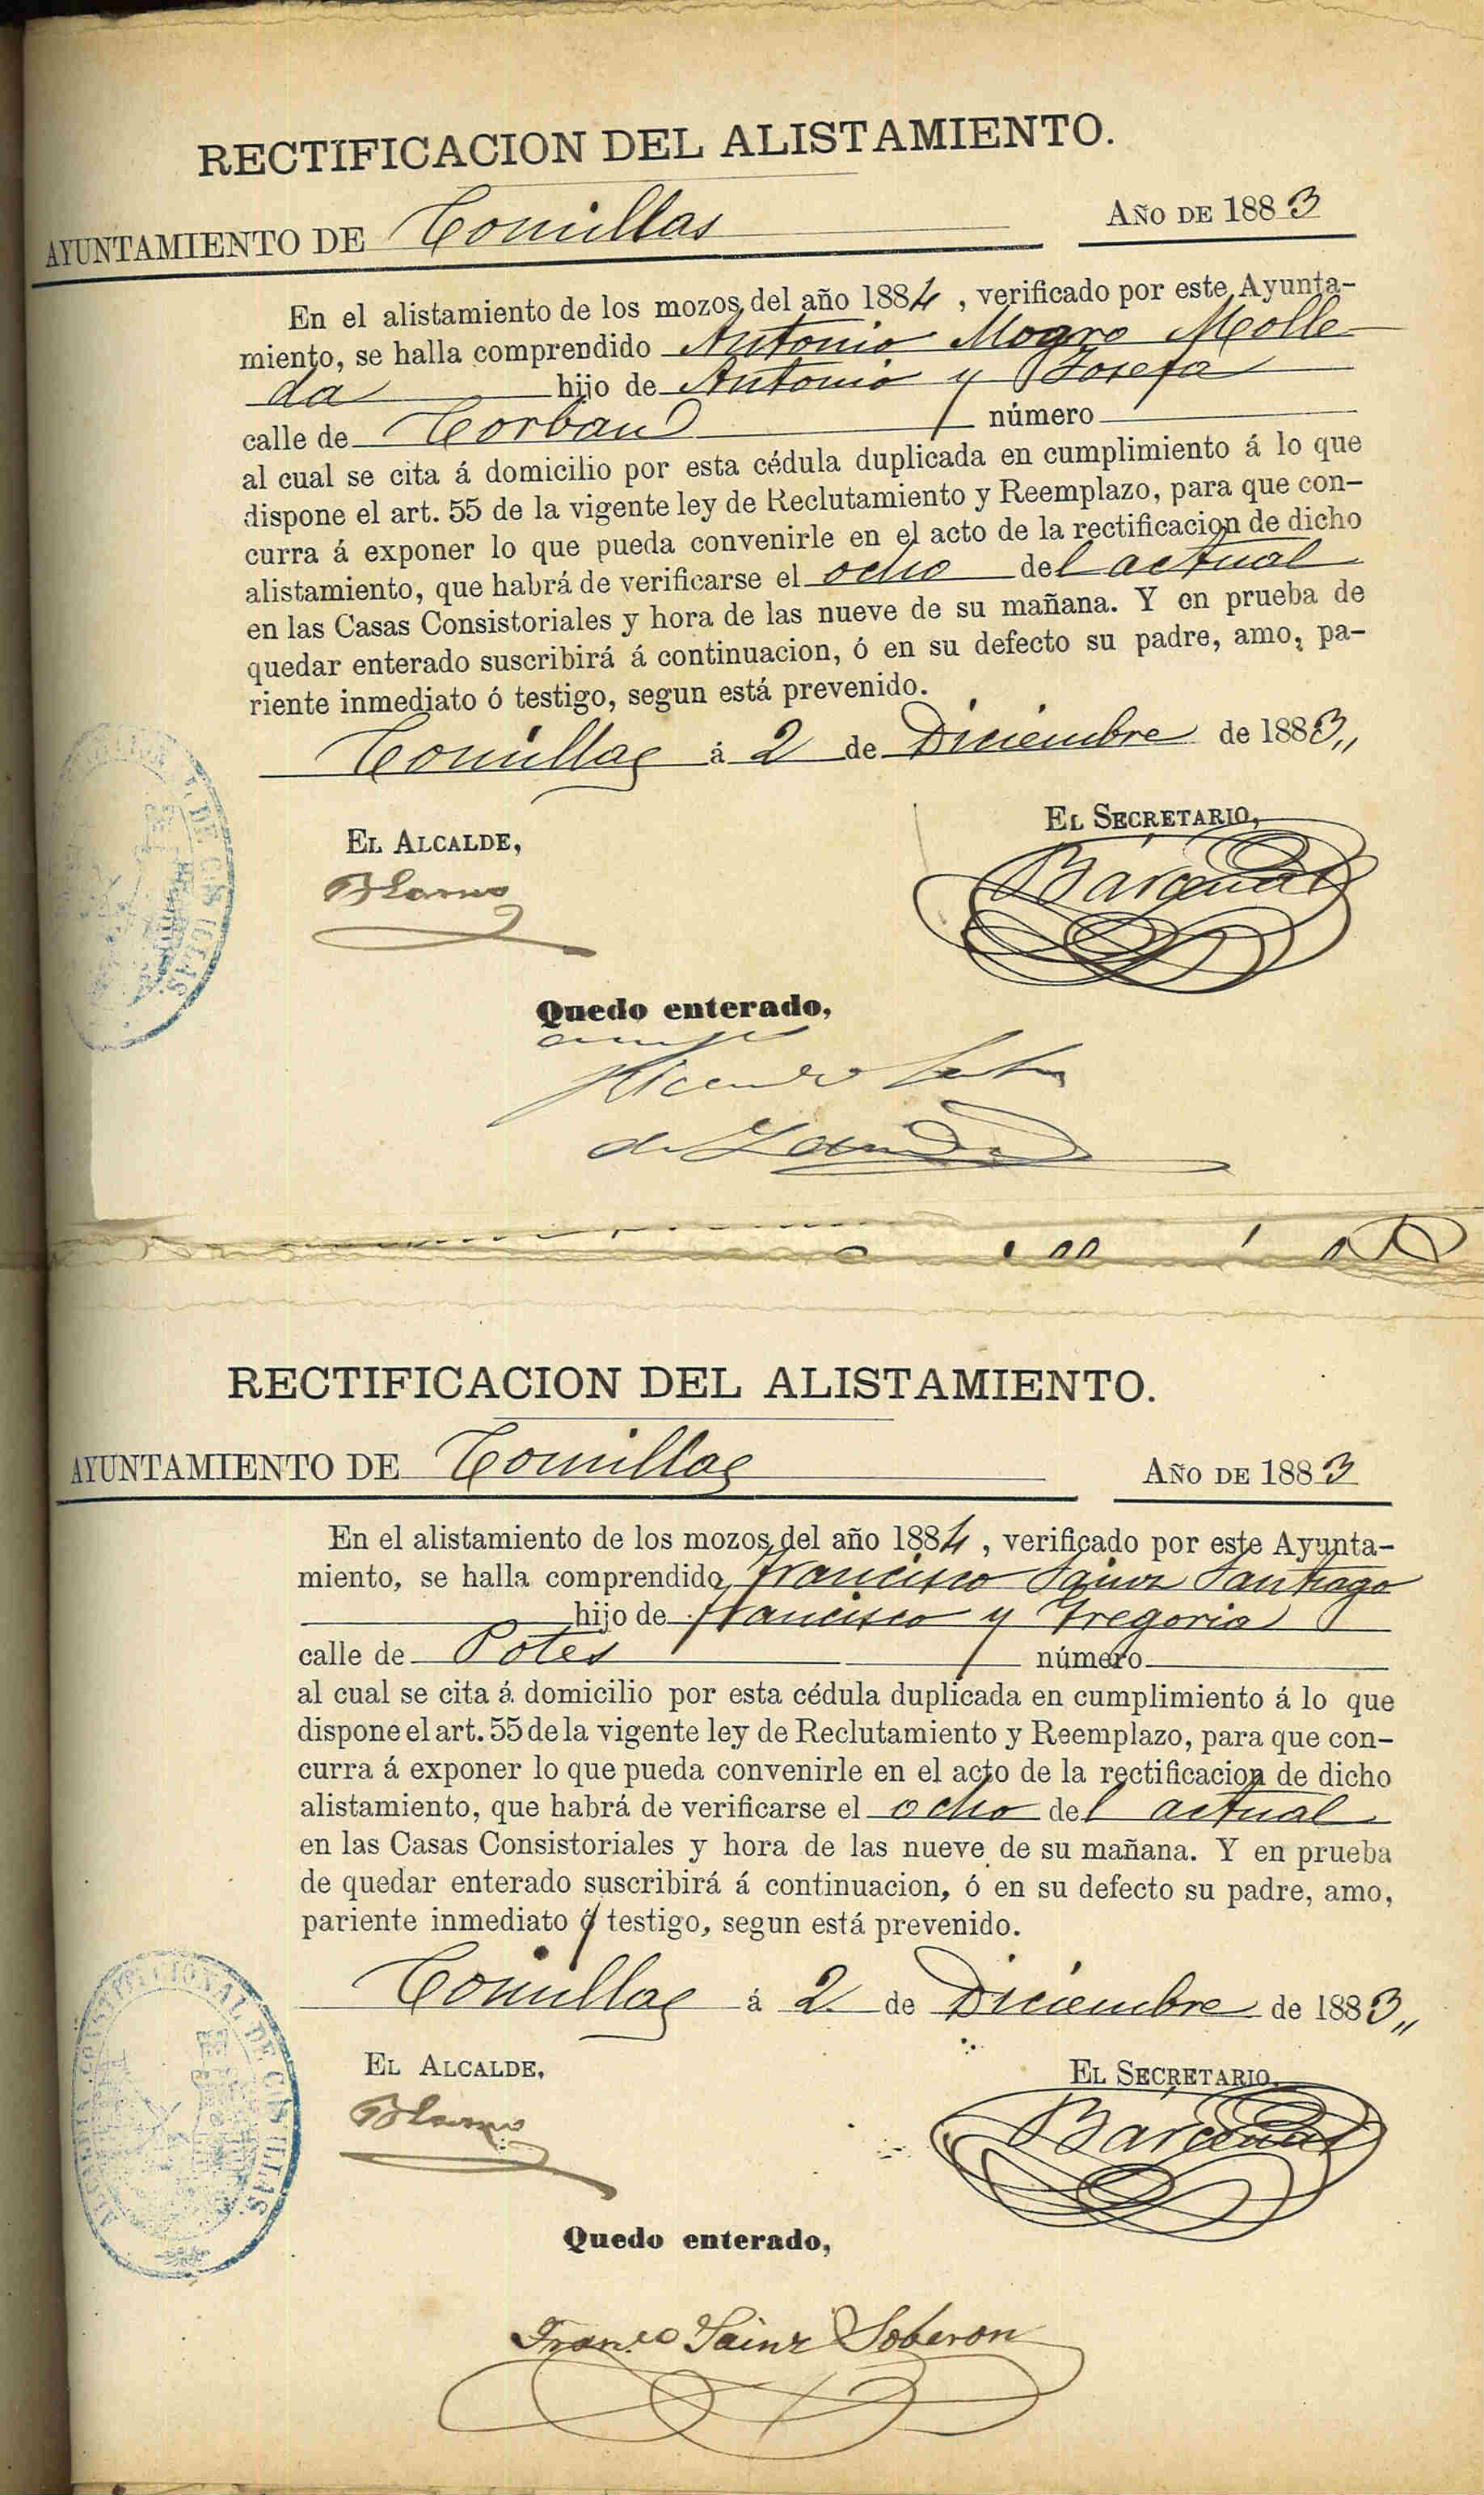 RECTIFICACION DEL ALISTAMIENTO.
AYUNTAMIENTO DE Comillas AÑO DE 1883
En el alistamiento de los mozos del año 1884, verificado por este Ayunta-
miento, se halla comprendido Antonio Mogro Molle
da hijo de Antonio y Josefa
calle de Corban número
al cual se cita á domicilio por esta cédula duplicada en cumplimiento á lo que
dispone el art. 55 de la vigente ley de Reclutamiento y Reemplazo, para que con-
curra á exponer lo que pueda convenirle en el acto de la rectificacion de dicho
alistamiento, que habrá de verificarse el ocho del actual
en las Casas Consistoriales y hora de las nueve de su mañana. Y en prueba de
quedar enterado suscribirá á continuacion, ó en su defecto su padre, amo, pa-
riente inmediato ó testigo, segun está prevenido.
Comillas á 2 de Diciembre de 1883,,
EL ALCALDE, EL SECRETARIO,
Bárcenas
Quedo enterado,
RECTIFICACION DEL ALISTAMIENTO.
AYUNTAMIENTO DE Comillas AÑO DE 1883
En el alistamiento de los mozos del año 1884, verificado por este Ayunta-
miento, se halla comprendido Francisco Sainz Santiago
hijo de Francisco y Gregoria
calle de Potes número
al cual se cita á domicilio por esta cédula duplicada en cumplimiento á lo que
dispone el art. 55 de la vigente ley de Reclutamiento y Reemplazo, para que con-
curra á exponer lo que pueda convenirle en el acto de la rectificacion de dicho
alistamiento, que habrá de verificarse el ocho del actual
en las Casas Consistoriales y hora de las nueve de su mañana. Y en prueba
de quedar enterado suscribirá á continuacion, ó en su defecto su padre, amo,
pariente inmediato ó testigo, segun está prevenido.
Comillas á 2 de Diciembre de 1883,,
EL ALCALDE, EL SECRETARIO,
Bárcenas
Quedo enterado,
Franco Sainz Soberon